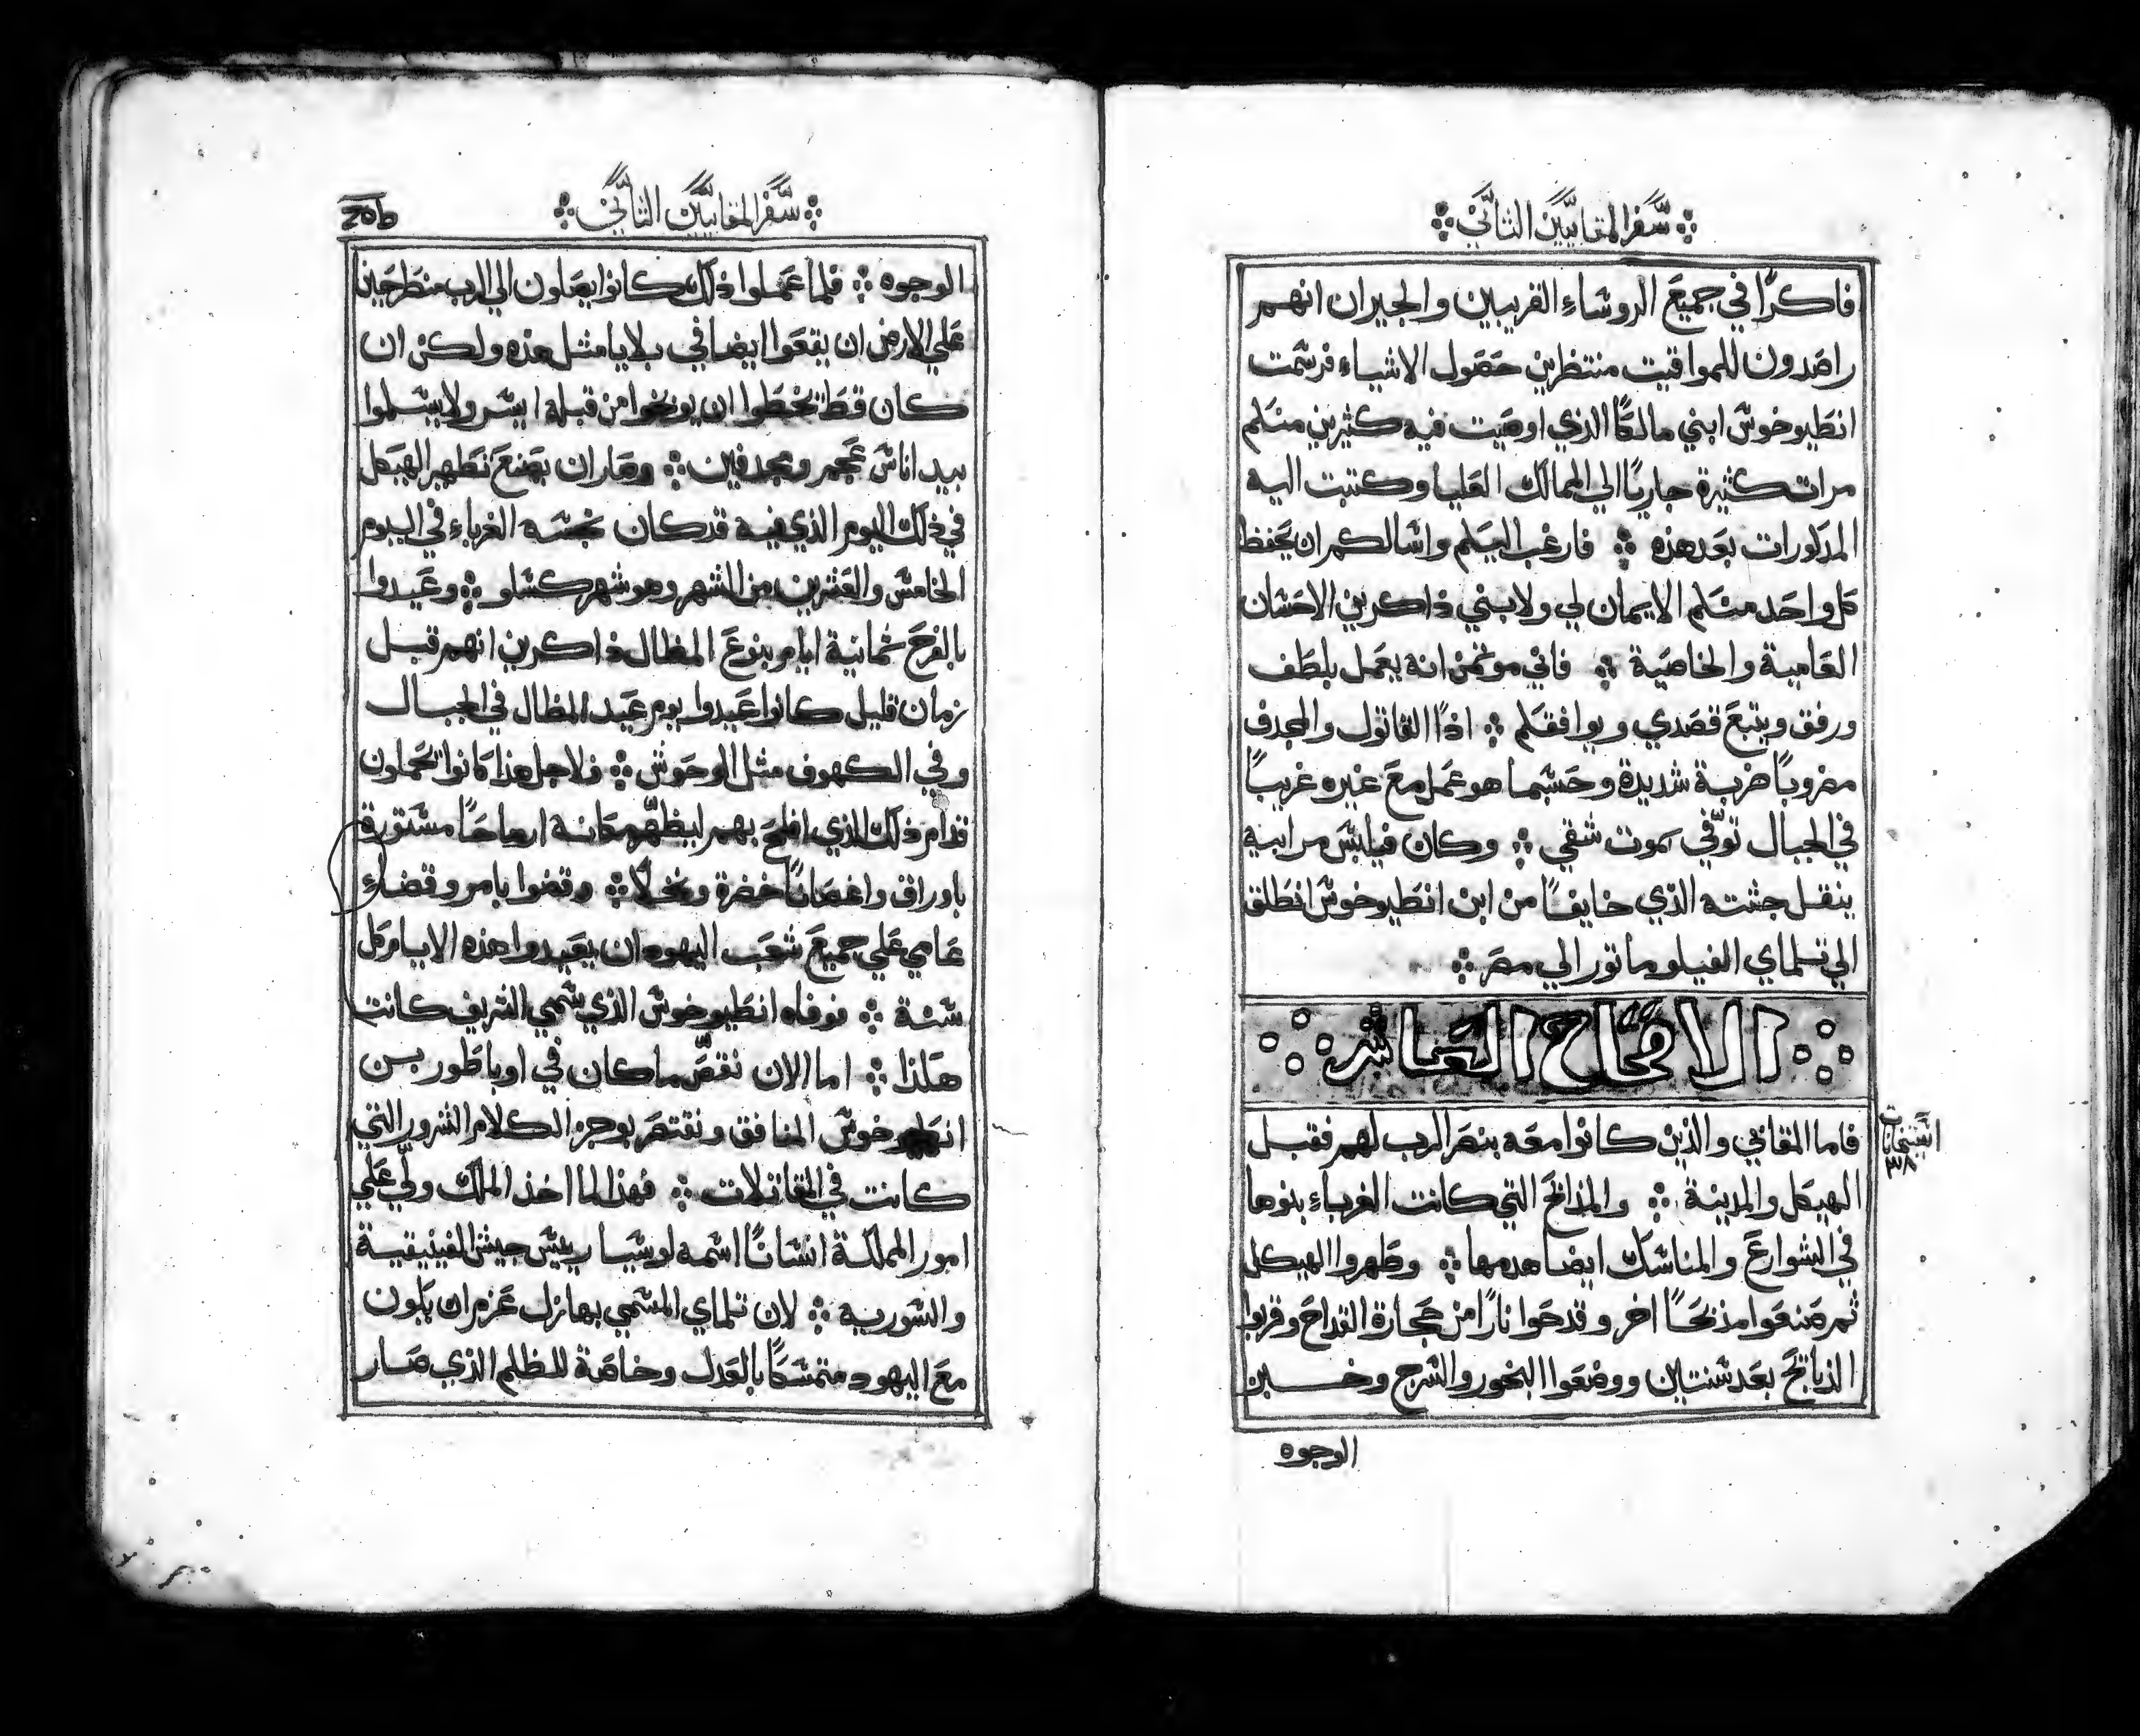 سفر المقابيين الثاني
فاكرًا في جميع الروساء القريبين والجيران انهم
راصدون للمواقيت منتظرين حصول الاشياء فرسمت
انطيوخوس ابني مالكًا الذي اوصيت فيه كثيرين منكم
مرات كثيرة جاريًا الي الممالك العليا وكتبت اليه
المذكورات بعد هذه ۞ فارغب اليكم واسالكم ان يحفظ
كل واحد منكم الايمان لي ولابني ذاكرين الاحسان
العامية والخاصية ۞ فاني موتمن انه يعمل بلطف
ورفق ويتبع قصدي ويوافقكم ۞ اذًا القاتول والمجدف
مضروبًا ضربة شديدة وحسبما هو عمل مع غيره غريبًا
في الجبال توّفي بموت شقي ۞ وكان فيلبس مرابيه
ينقل جثته الذي خايفًا من ابن انطيوخوس انطلق
الي تلماي الفيلوماتور الي مصر ۞
الاصحاح العاشر
فاما المقابي والذين كانوا معه بنصر الرب لهم فقبل
الهيكل والمدينة ۞ والمذابح التي كانت الغرباء بنوها
في الشوارع والمناسك ايضا هدمها ۞ وطهروا الهيكل
ثم صنعوا مذبحًا اخر وقدحوا نارًا من حجارة القداح وقربوا
الذبايح بعد سنتين ووضعوا البخور والسرج وخبـــز
الوجوه
سفر المقابيين الثاني
الوجوه ۞ فلما عملوا ذلك كانوا يصلون الي الرب منطرحين
علي الارض ان يقعوا ايضا في بلايا مثل هذه ولكن ان
كان قط يخطوا ان يوبخوا من قبله ايسر ولا يسلموا
بيد اناس عجم ومجدفين ۞ وصار ان يصنع تطهير الهيكل
في ذلك اليوم الذي فيه قد كان نجسه الغرباء في اليوم
الخامس والعشرين من الشهر وهو شهر كسلو ۞ وعيدوا
بالفرح ثمانية ايام بنوع المظال ذاكرين انهم قبل
زمان قليل كانوا عيدوا يوم عيد المظال في الجبال
وفي الكهوف مثل الوحوش ۞ فلاجل هذا كانوا يحملون
قدام ذلك الذي افلح بهم ليطهّر مكانه ارماحًا مستورة
باوراق واغصانًا خضرة ونخلًا ۞ وقضوا بامر وقضاء
عامي علي جميع شعب اليهود ان يعيدوا هذه الايام كل
سنة ۞ فوفاه انطيوخوس الذي سمي الشريف كانت
هكذا ۞ اما الان نقصّ ما كان في اوباطور بن
انطيوخوس المنافق ونقتصر بوجز الكلام الشرور التي
كانت في القتالات ۞ فهذا لما اخذ الملك ولّي علي
امور المملكة انسانًا اسمه لوسيا رييس جيش الفينيقية
والسورية ۞ لان تلماي المسمي بهازل عزم ان يكون
مع اليهود متمسكًا بالعدل وخاصة للظلم الذي صار